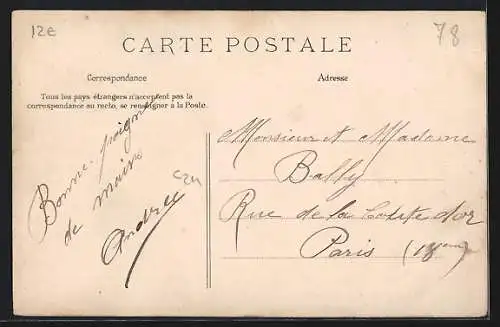 12E
78
CARTE POSTALE
Correspondance
Adresse
Tous les pays étrangers n'acceptent pas la
correspondance au recto, se renseigner à la Poste.
Bonne poignée
de main
Andrée
Monsieur et Madame
Bally
Rue de la Goutte d'or
Paris (18eme)